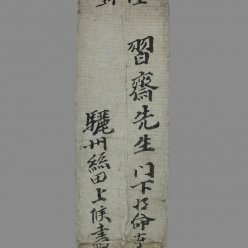 習齋先生 門下 將命
驪州絲田上候書